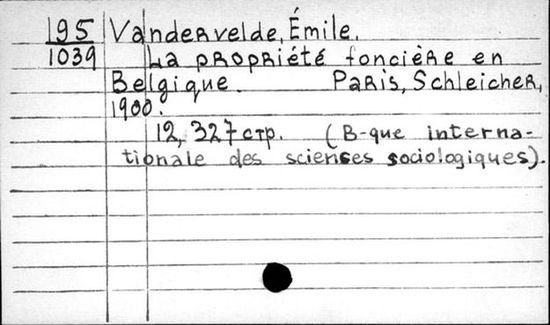 195 Vandervelde, Émile.
1039 La propriété foncière en
Belgique. Paris, Schleicher,
1900.
12, 327 стр. (B-que interna-
tionale des scienses sociologiques).